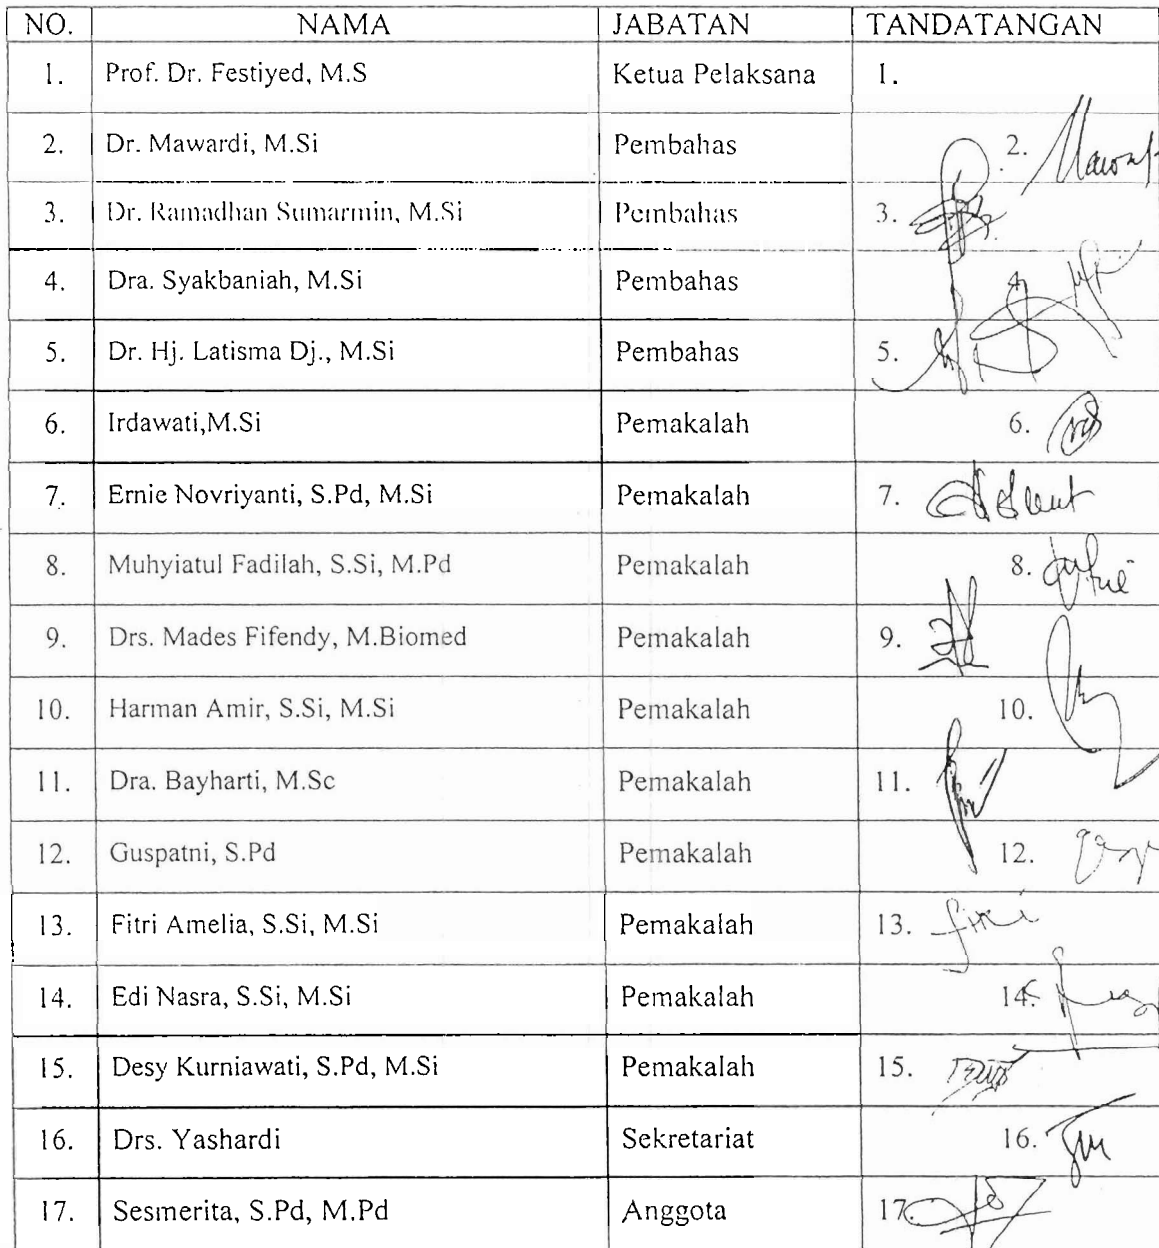 NO. NAMA JABATAN TANDATANGAN
1. Prof. Dr. Festiyed, M.S Ketua Pelaksana 1.
2. Dr. Mawardi, M.Si Pembahas 2.
3. Dr. Ramadhan Sumarmin, M.Si Pembahas 3.
4. Dra. Syakbaniah, M.Si Pembahas 4.
5. Dr. Hj. Latisma Dj., M.Si Pembahas 5.
6. Irdawati,M.Si Pemakalah 6.
7. Ernie Novriyanti, S.Pd, M.Si Pemakalah 7.
8. Muhyiatul Fadilah, S.Si, M.Pd Pemakalah 8.
9. Drs. Mades Fifendy, M.Biomed Pemakalah 9.
10. Harman Amir, S.Si, M.Si Pemakalah 10.
11. Dra. Bayharti, M.Sc Pemakalah 11.
12. Guspatni, S.Pd Pemakalah 12.
13. Fitri Amelia, S.Si, M.Si Pemakalah 13.
14. Edi Nasra, S.Si, M.Si Pemakalah 14.
15. Desy Kurniawati, S.Pd, M.Si Pemakalah 15.
16. Drs. Yashardi Sekretariat 16.
17. Sesmerita, S.Pd, M.Pd Anggota 17.